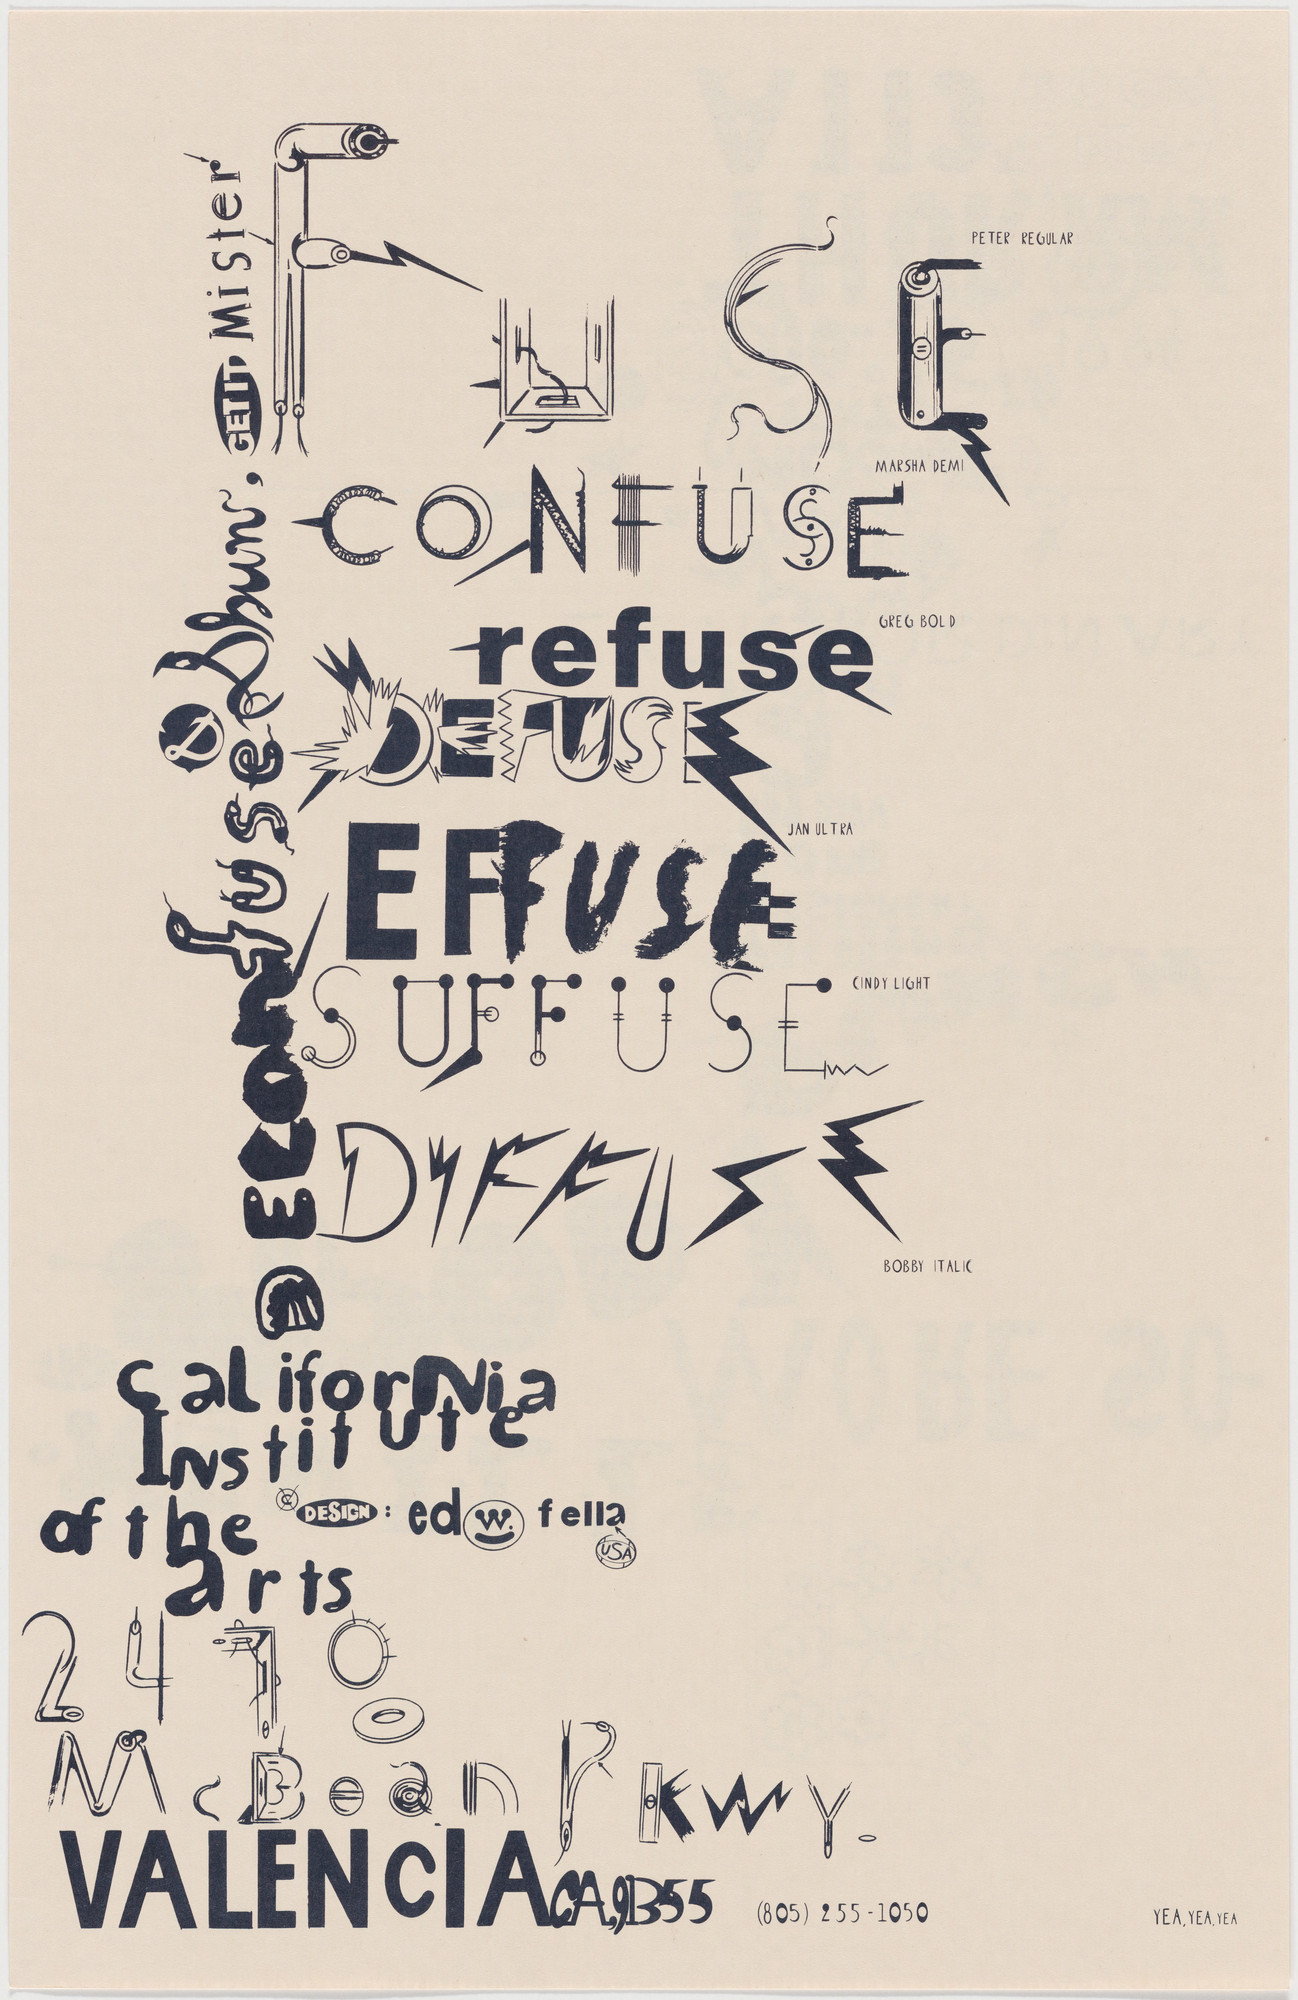 FUSE
PETER REGULAR
MARSHA DEMI
CONFUSE
GREG BOLD
refuse
DEFUSE
JAN ULTRA
EFFUSE
CINDY LIGHT
SUFFUSE
DIFFUSE
BOBBY ITALIC
DECONfuse &
GETIT, MiSter
California
Institute
of the
arts
© DESIGN: ed W. fella
USA
2470
McBean PKwy.
VALENCIA CA, 91355
(805) 255-1050
YEA, YEA, YEA